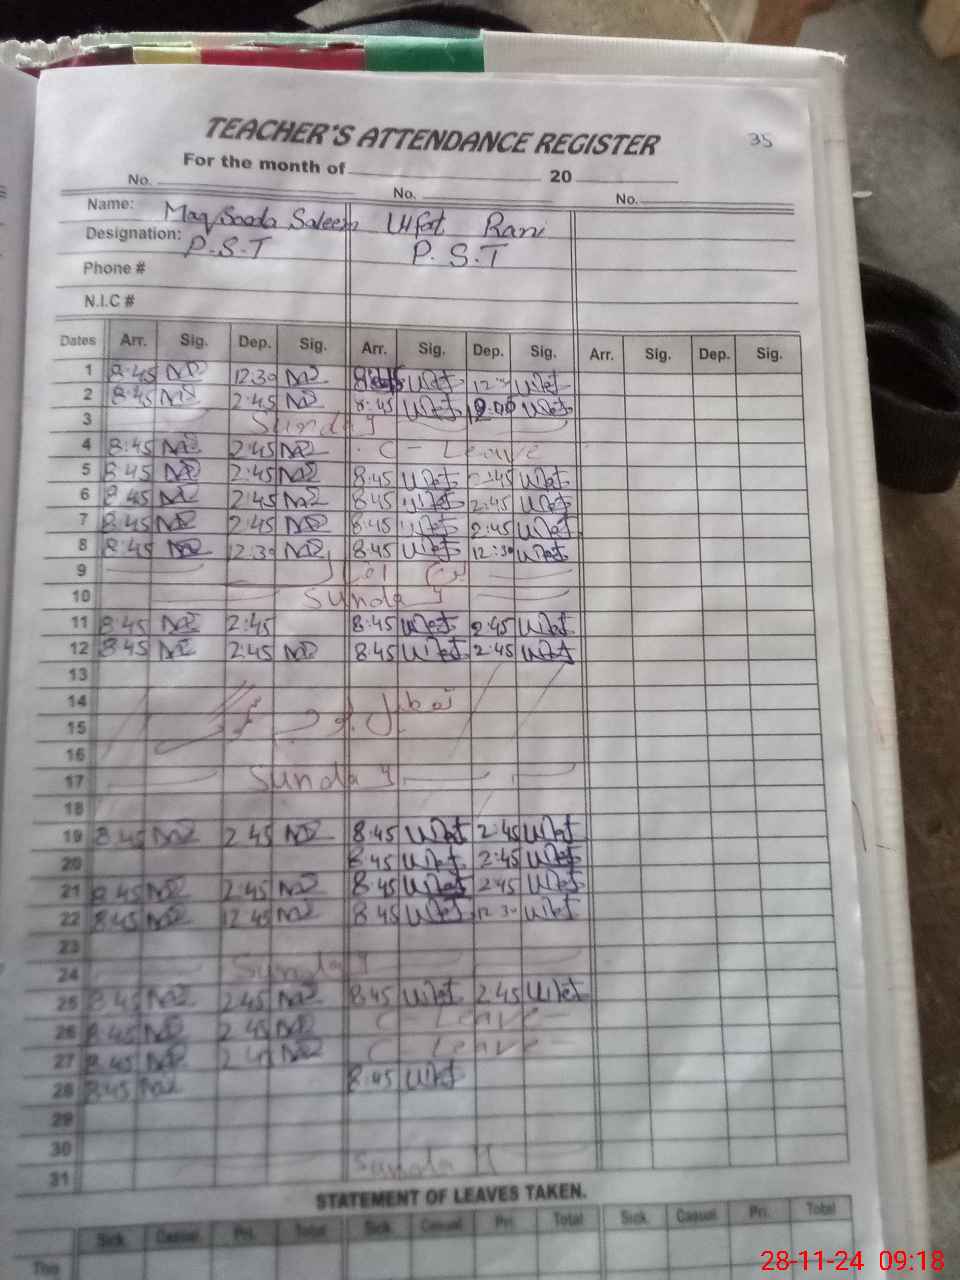 TEACHER'S ATTENDANCE REGISTER 35
For the month of 20
No. No. No.
Name: Maqsooda Saleem Ulfat Rani
Designation: P.S.T P.S.T
Phone #
N.I.C #
Dates Arr. Sig. Dep. Sig. Arr. Sig. Dep. Sig. Arr. Sig. Dep. Sig.
1 8:45 12:30 Ulfat 12:30 Ulfat
2 8:45 2:45 8:45 Ulfat Ulfat
3 Sunday
4 8:45 2:45 C - Leave
5 8:45 2:45 8:45 Ulfat 2:45 Ulfat
6 8:45 2:45 8:45 Ulfat 2:45 Ulfat
7 8:45 2:45 8:45 Ulfat 2:45 Ulfat
8 8:45 12:30 8:45 Ulfat 12:30 Ulfat
9
10 Sunday
11 8:45 2:45 8:45 Ulfat 2:45 Ulfat
12 8:45 2:45 8:45 Ulfat 2:45 Ulfat
13
14
15
16
17 Sunday
18
19 8:45 2:45 8:45 Ulfat 2:45 Ulfat
20 8:45 Ulfat 2:45 Ulfat
21 8:45 2:45 8:45 Ulfat 2:45 Ulfat
22 8:45 12:45 8:45 Ulfat 12:30 Ulfat
23
24 Sunday
25 8:45 2:45 8:45 Ulfat 2:45 Ulfat
26 8:45 2:45 C - Leave -
27 8:45 C - Leave -
28 8:45 8:45 Ulfat
29
30
31 Sunday
STATEMENT OF LEAVES TAKEN.
Sick Casual Pri. Total Sick Casual Pri. Total Sick Casual Pri. Total
This
28-11-24 09:18